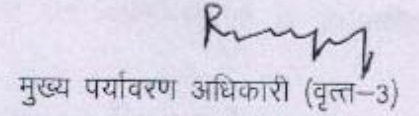 मुख्य पर्यावरण अधिकारी (वृत्त–3)